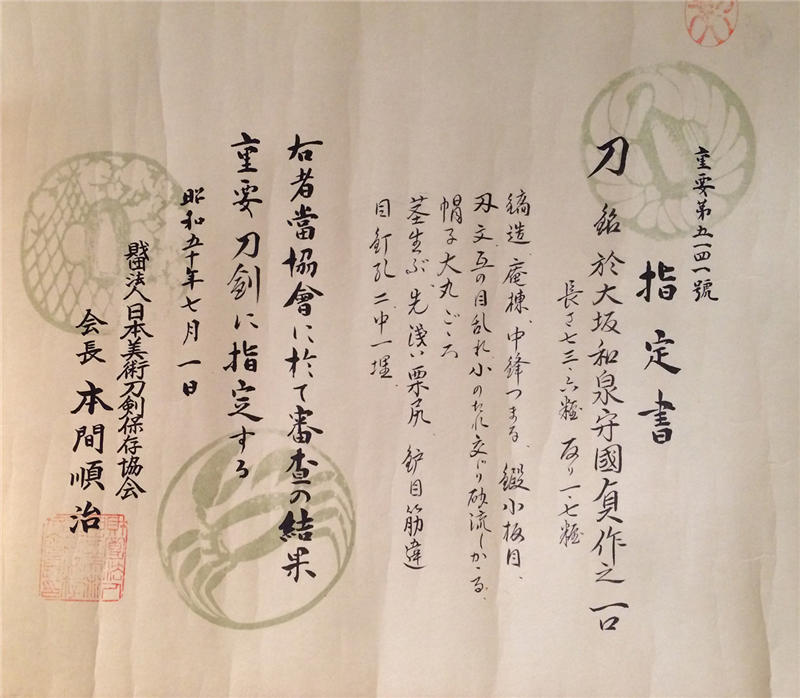 重要第五一四一號
指定書
刀 銘 於大坂和泉守國貞作之 一口
長さ七三・六糎 反り一・七糎
鎬造、庵棟、中鋒つまる、鍛小板目、
刃文、互の目乱れ、小のたれ交じり砂流しかゝる、
帽子大丸ごころ
茎生ぶ、先浅い栗尻、鈩目筋違
目釘孔二中一埋、
右者當協會に於て審査の結果
重要刀剣に指定する
昭和五十年七月一日
財団法人日本美術刀剣保存協会
会長 本間順治